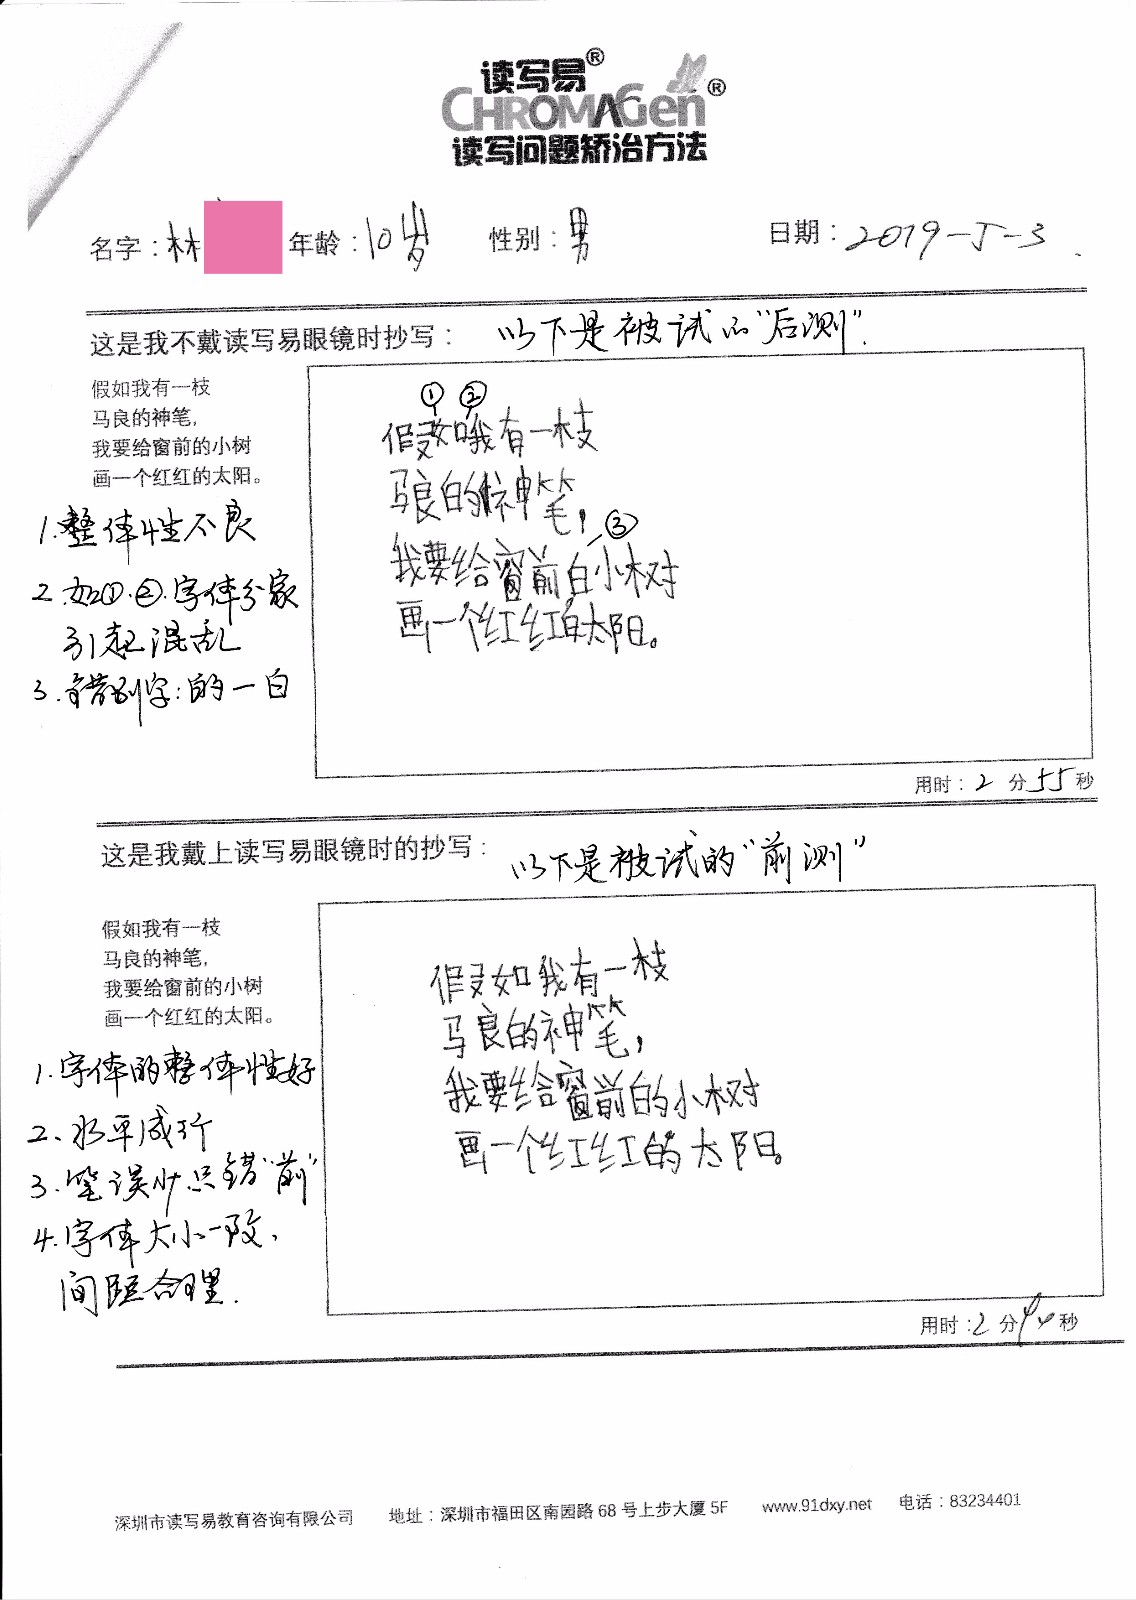 读写易®
CHROMAGen®
读写问题矫治方法
名字：林 年龄：10岁 性别：男 日期：2019-5-3
这是我不戴读写易眼镜时抄写： 以下是被试的“后测”.
假如我有一枝
马良的神笔，
我要给窗前的小树
画一个红红的太阳。
1.整体性不良
2.如①.②.字体分家
引起混乱
3.错别字:的一白
① ②
假如哦有一枝
马良的神笔，
③
我要给窗前白小树
画一个红红的太阳。
用时：2 分 55 秒
这是我戴上读写易眼镜时的抄写： 以下是被试的“前测”
假如我有一枝
马良的神笔，
我要给窗前的小树
画一个红红的太阳。
1.字体的整体性好
2、水平成行
3.笔误少只错“前”
4.字体大小一致，
间距合理.
假如我有一枝
马良的神笔，
我要给窗前的小树
画一个红红的太阳。
用时：2 分 秒
深圳市读写易教育咨询有限公司 地址：深圳市福田区南园路 68 号上步大厦 5F www.91dxy.net 电话：83234401